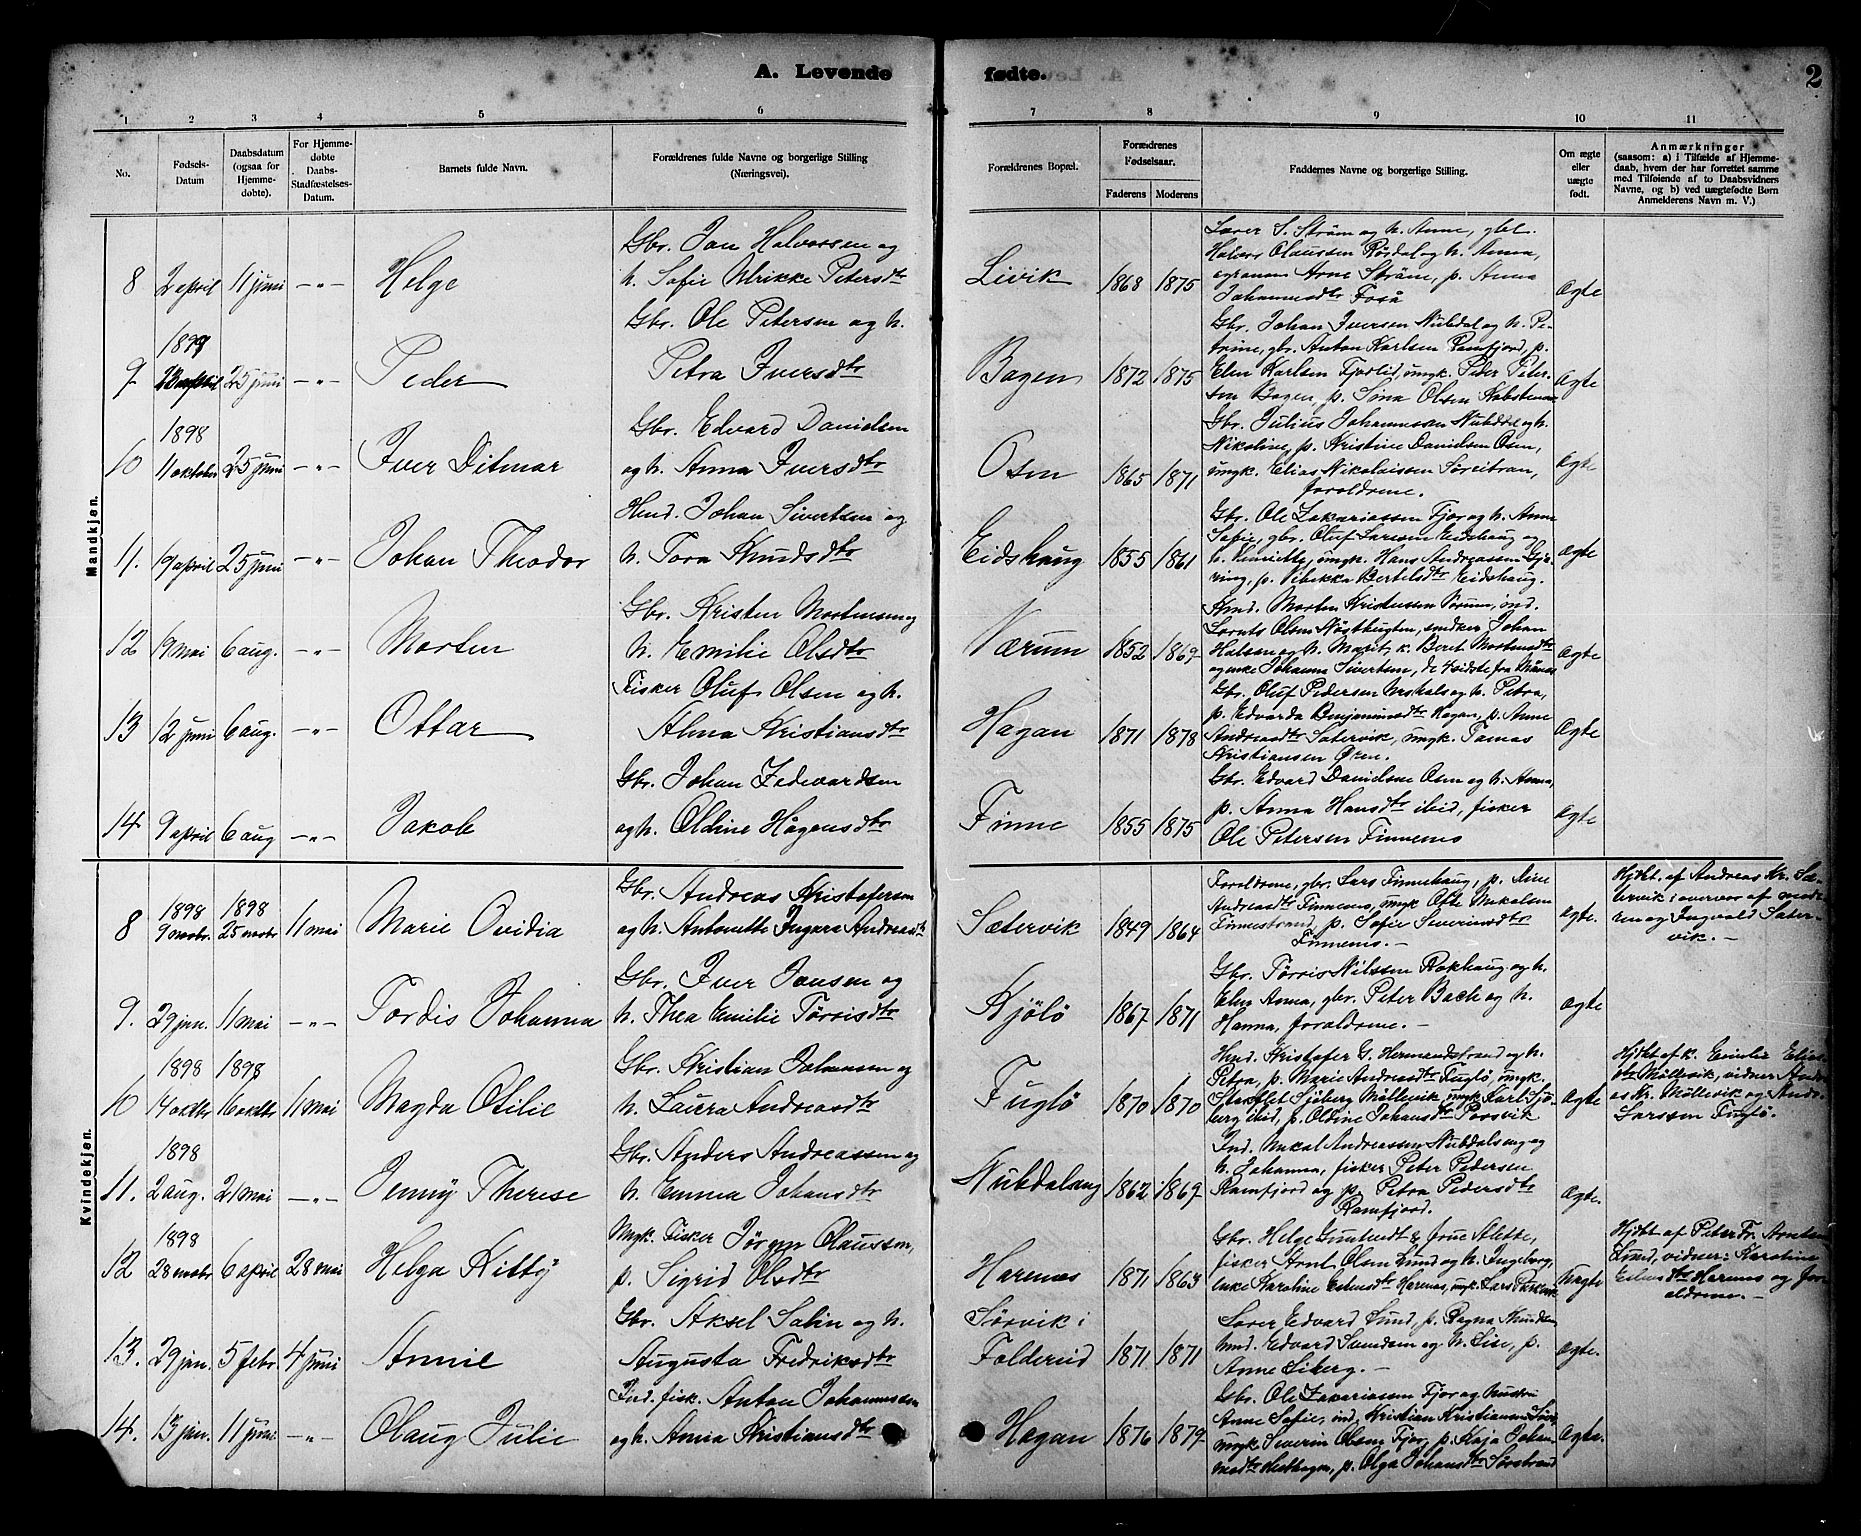 A. Levende fødte. 2
1 2 3 4 5 6 7 8 9 10 11
No.
Fødsels-
Datum
Daabsdatum
(ogsaa for
Hjemme-
døbte).
For Hjemme-
døbte
Daabs-
Stadfæstelses-
Datum.
Barnets fulde Navn.
Forældrenes fulde Navne og borgerlige Stilling
(Næringsvei).
Forældrenes Bopæl.
Forældrenes
Fødselsaar.
Faderens Moderens
Faddernes Navne og borgerlige Stilling.
Om ægte
eller
uægte
født.
Anmærkninger
(saasom: a) i Tilfælde af Hjemme-
daab, hvem der har forrettet samme
med Tilføiende af to Daabsvidners
Navne, og b) ved uægtefødte Børn
Anmelderens Navn m. V.)
Mandkjøn.
8 2 april 11 juni -"- Helge
Gbr. Jan Halvorsen og
h. Sofie Ulrikke Petersdtr
Livik 1868 1875
Lærer S. Strøm og h. Anne, gbr.
Halvor Olaussen Rørdal og h. Anna,
Arne Strøm, p. Anna
Johannesdtr Foså
Ægte
9 1899 23 april 25 juni -"- Peder
Gbr. Ole Petersen og h.
Petra Iversdtr
Bogen 1872 1875
Gbr. Johan Iversen Nubdal og h. Pe-
trine, gbr. Anton Karlsen Ramfjord, p.
Elen Karlsen Fjordlid, ungk. Peter Peter-
sen Bogen, p. Sina Olsen
Ægte
10 1898 11 oktober 25 juni -"- Iver Ditmar
Gbr. Edvard Danielsen
og h. Anna Iversdtr
Osen 1865 1871
Gbr. Julius Johannessen Nubdal og h.
Nikoline, p. Kristine Danielsen Osen,
ungk. Elias Nikolaissen Søreitran,
forældrene.
Ægte
11. 19 april 25 juni -"- Johan Theodor
Hmd. Johan Sivertsen og
h. Tora Knudsdtr
Eidshaug 1855 1861
Gbr. Ole Zakariassen Fjær og h. Anne
Sofie, gbr. Oluf Larssen Eidshaug og
h. Henriette, ungk. Hans Andreassen Gjæ-
ring, p. Vibekka Bertelsdtr Eidshaug.
Ægte
12 19 mai 6 aug. -"- Morten
Gbr. Kristen Mortensen og
h. Emilie Olsdtr
Værum 1852 1869
Kmd. Morten Kristensen Værum, ind.
Lornts Olsen Nøsthugten, snedker Johan
Halsen og h. Marit, k. Beret Mortensdtr
og enke Johanna Sivertsen, de 4 sidste fra
Ægte
13 12 juni 6 aug. -"- Ottar
Fisker Oluf Olsen og h.
Alma Kristiansdtr
Hagan 1871 1878
Gbr. Oluf Pedersen og h. Petra,
p. Edvarda Benjaminsdtr Hagan, p. Anne
Andreasdtr Sætervik, ungk. Tomas
Kristiansen Øren.
Ægte
14. 9 april 6 aug -"- Jakob
Gbr. Johan Zedevardsen
og h. Oldine Hågensdtr
Finne 1855 1875
Gbr. Edvard Danielsen Osen og h. Anna,
p. Anna Hansdtr ibid, fisker
Ole Petersen Finnemo
Ægte
Kvindekjøn.
8 1898 9 novbr. 1898 25 novbr 11 mai Marie Ovidia
Gbr. Andreas Kristofersen
og h. Antonette Ingara Andreasdtr
Sætervik 1849 1864
Forældrene, gbr. Lars Finnehaug, p. Line
Andreasdtr Finnemo, ungk Ofte Mikalsen
Finnestrand, p. Sofie Severinsdtr
Finnemo. -
ægte.
Hjdbt. af Andreas Kr. Sæ-
tervik i overvær af mode-
ren og Ingvald Sæter-
vik. -
9. 29 jan. 11 mai -"- Tordis Johanna
Gbr. Iver Jansen og
h. Thea Emilie Tørrisdtr
Kjølø 1867 1871
Gbr. Tørris Nilssen Rokhaug og h.
Elen Anna, gbr. Peter Bach og h.
Hanna, forældrene. -
Ægte
10 1898 14 oktbr 1898 16 oktbr 11 mai Magda Otilie
Gbr. Kristian Johansen og
h. Laura Andreasdtr
Fuglø 1870 1870
Hmd. Kristofer G. Hermandstrand og h.
Petra, p. Marie Andreasdtr Fuglø, ungk.
Sjøberg Møllevik, ungk Karl Sjø-
berg ibid, p. Oldine Johansdtr Porsvik
Ægte
Hjdbt af k. Emilie Elias-
dtr Møllevik, vidner Andre-
as Kr. Møllevik og Andr.
Larssen Fuglø.
11. 1898 2 aug. 21 mai -"- Jenny Therese
Gbr. Anders Andreassen og
h. Emma Johansdtr
Nubdalsaug 1862 1869
Ind. Mikal Andreassen Nubdalsaug og
h. Johanna, fisker Peter Pedersen
Ramfjord og p. Petra Pedersdtr
Ramfjord.
Ægte.
12 1898 28 novbr 6 april 28 mai Helga Kitty
Ungk. Fisker Jørgen Olaussen,
p. Sigrid Olsdtr
Horenæs 1871 1863
Gbr. Helge & Alette,
fisker Arnt Olsen Lund og h. Ingeborg,
enke Karoline Estensdtr Horenæs, ungk. Lars
Uægte
Hjdbt af Peter Fr. Arntsen
Lund, vidner: Karoline
Estensdtr Horenæs og for-
ældrene. -
13. 29 jan. 5 febr. 4 juni Annie
Gbr. Aksel Salin og h.
Augusta Fredriksdtr
Sørvik i
Foldereid 1871 1871
Lærer Edvard Lund, p. Ragna Knudsen,
hmd. Edvard og h. Lise, p.
Anne Siberg. -
ægte.
14. 13 jan. 11 juni -"- Olaug Julie
Ind. fisk. Anton Johannessen
og h. Anna Kristiansdtr
Hagan 1876 1879
Gbr. Ole Zakariassen Fjær og hustru
Anne Sofie, ind. Kristian Kristiansen
ungk Severin Olsen Fjær, p. Kaja Johan-
nesdtr p. Olga Johansdtr Sørstrand
Ægte.